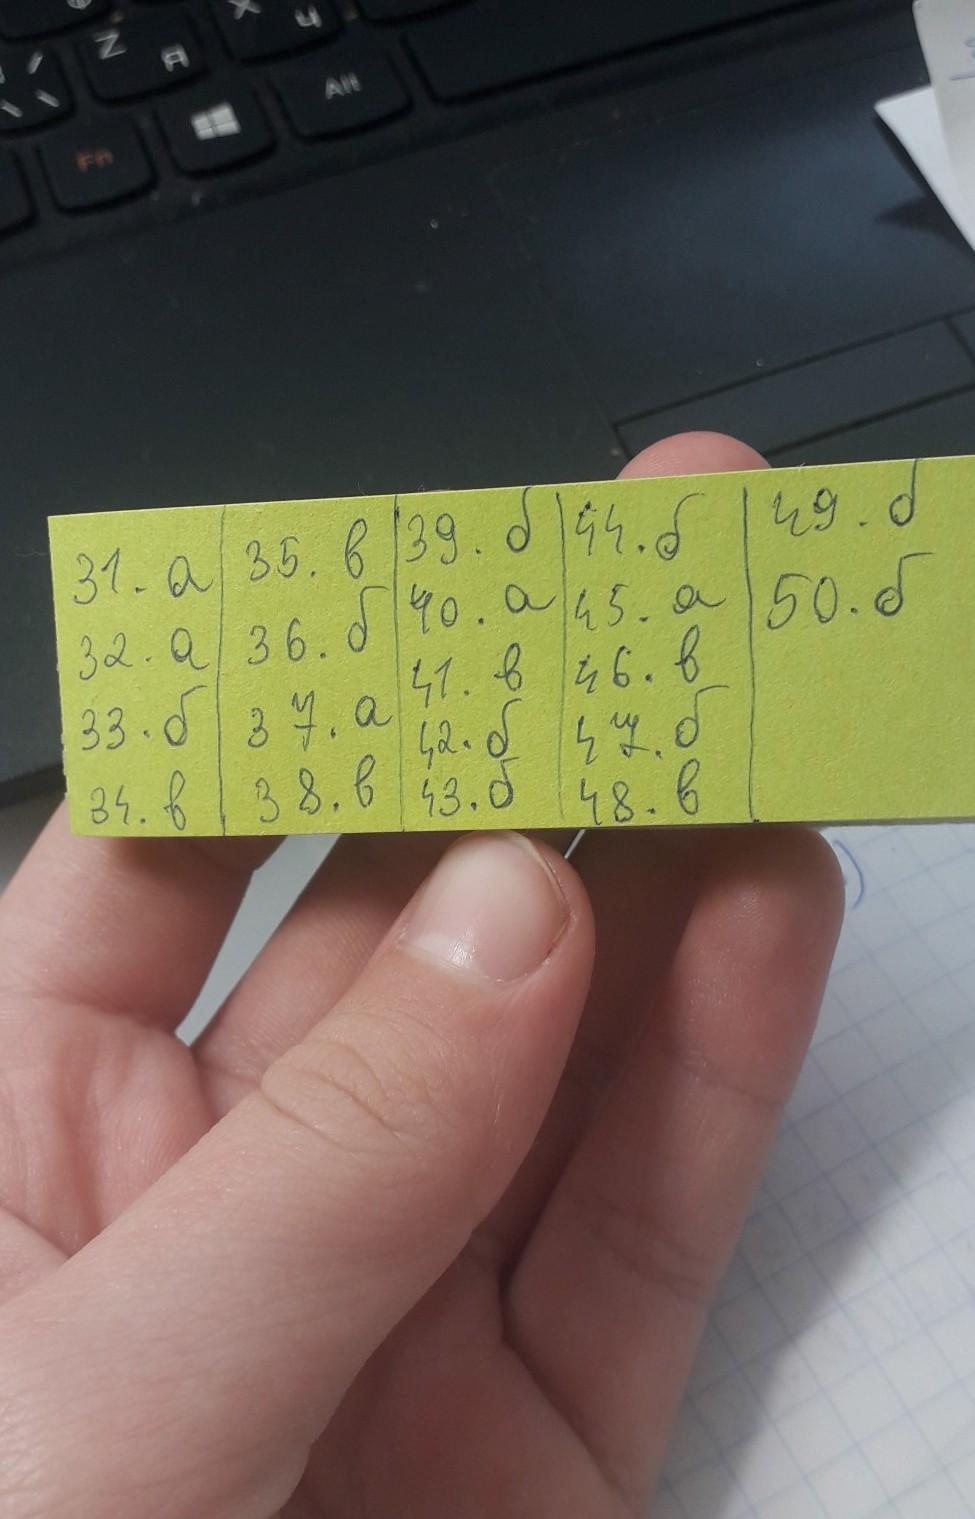 Z Я
X Ч
Alt
Fn
31. а
32. а
33. б
34. в
35. в
36. б
37. а
38. в
39. б
40. а
41. в
42. б
43. б
44. б
45. а
46. в
47. б
48. в
49. б
50. б